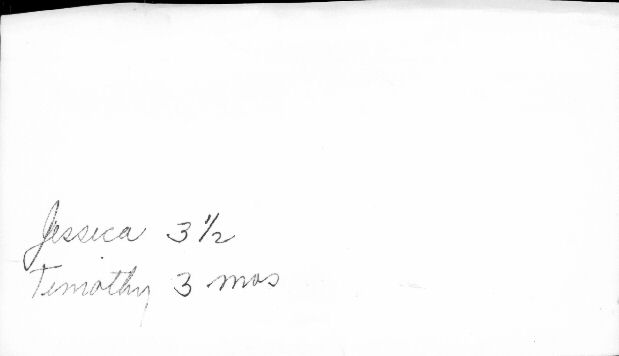 Jessica 3 1/2
Timothy 3 mos